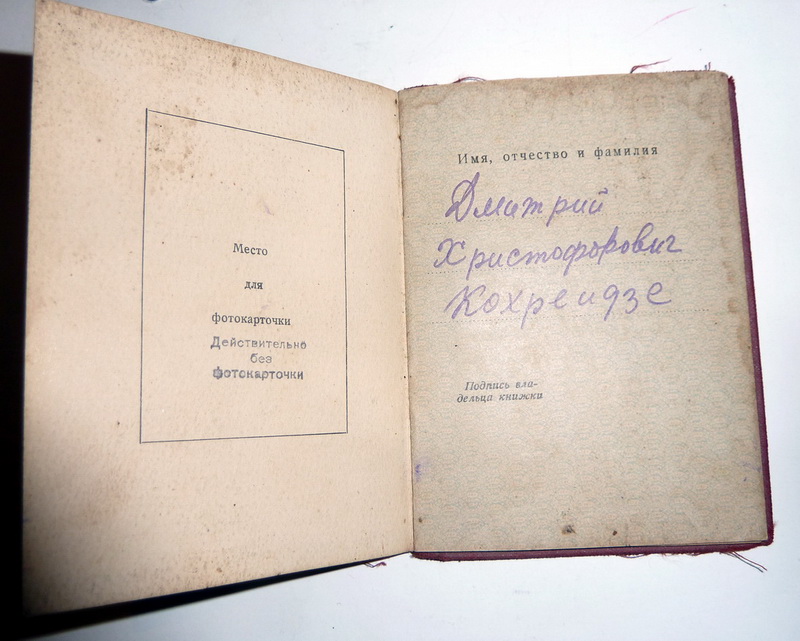 Место
для
фотокарточки
Действительно
без
фотокарточки
Имя, отчество и фамилия
Дмитрий
Христофорович
Кохреидзе
Подпись вла-
дельца книжки